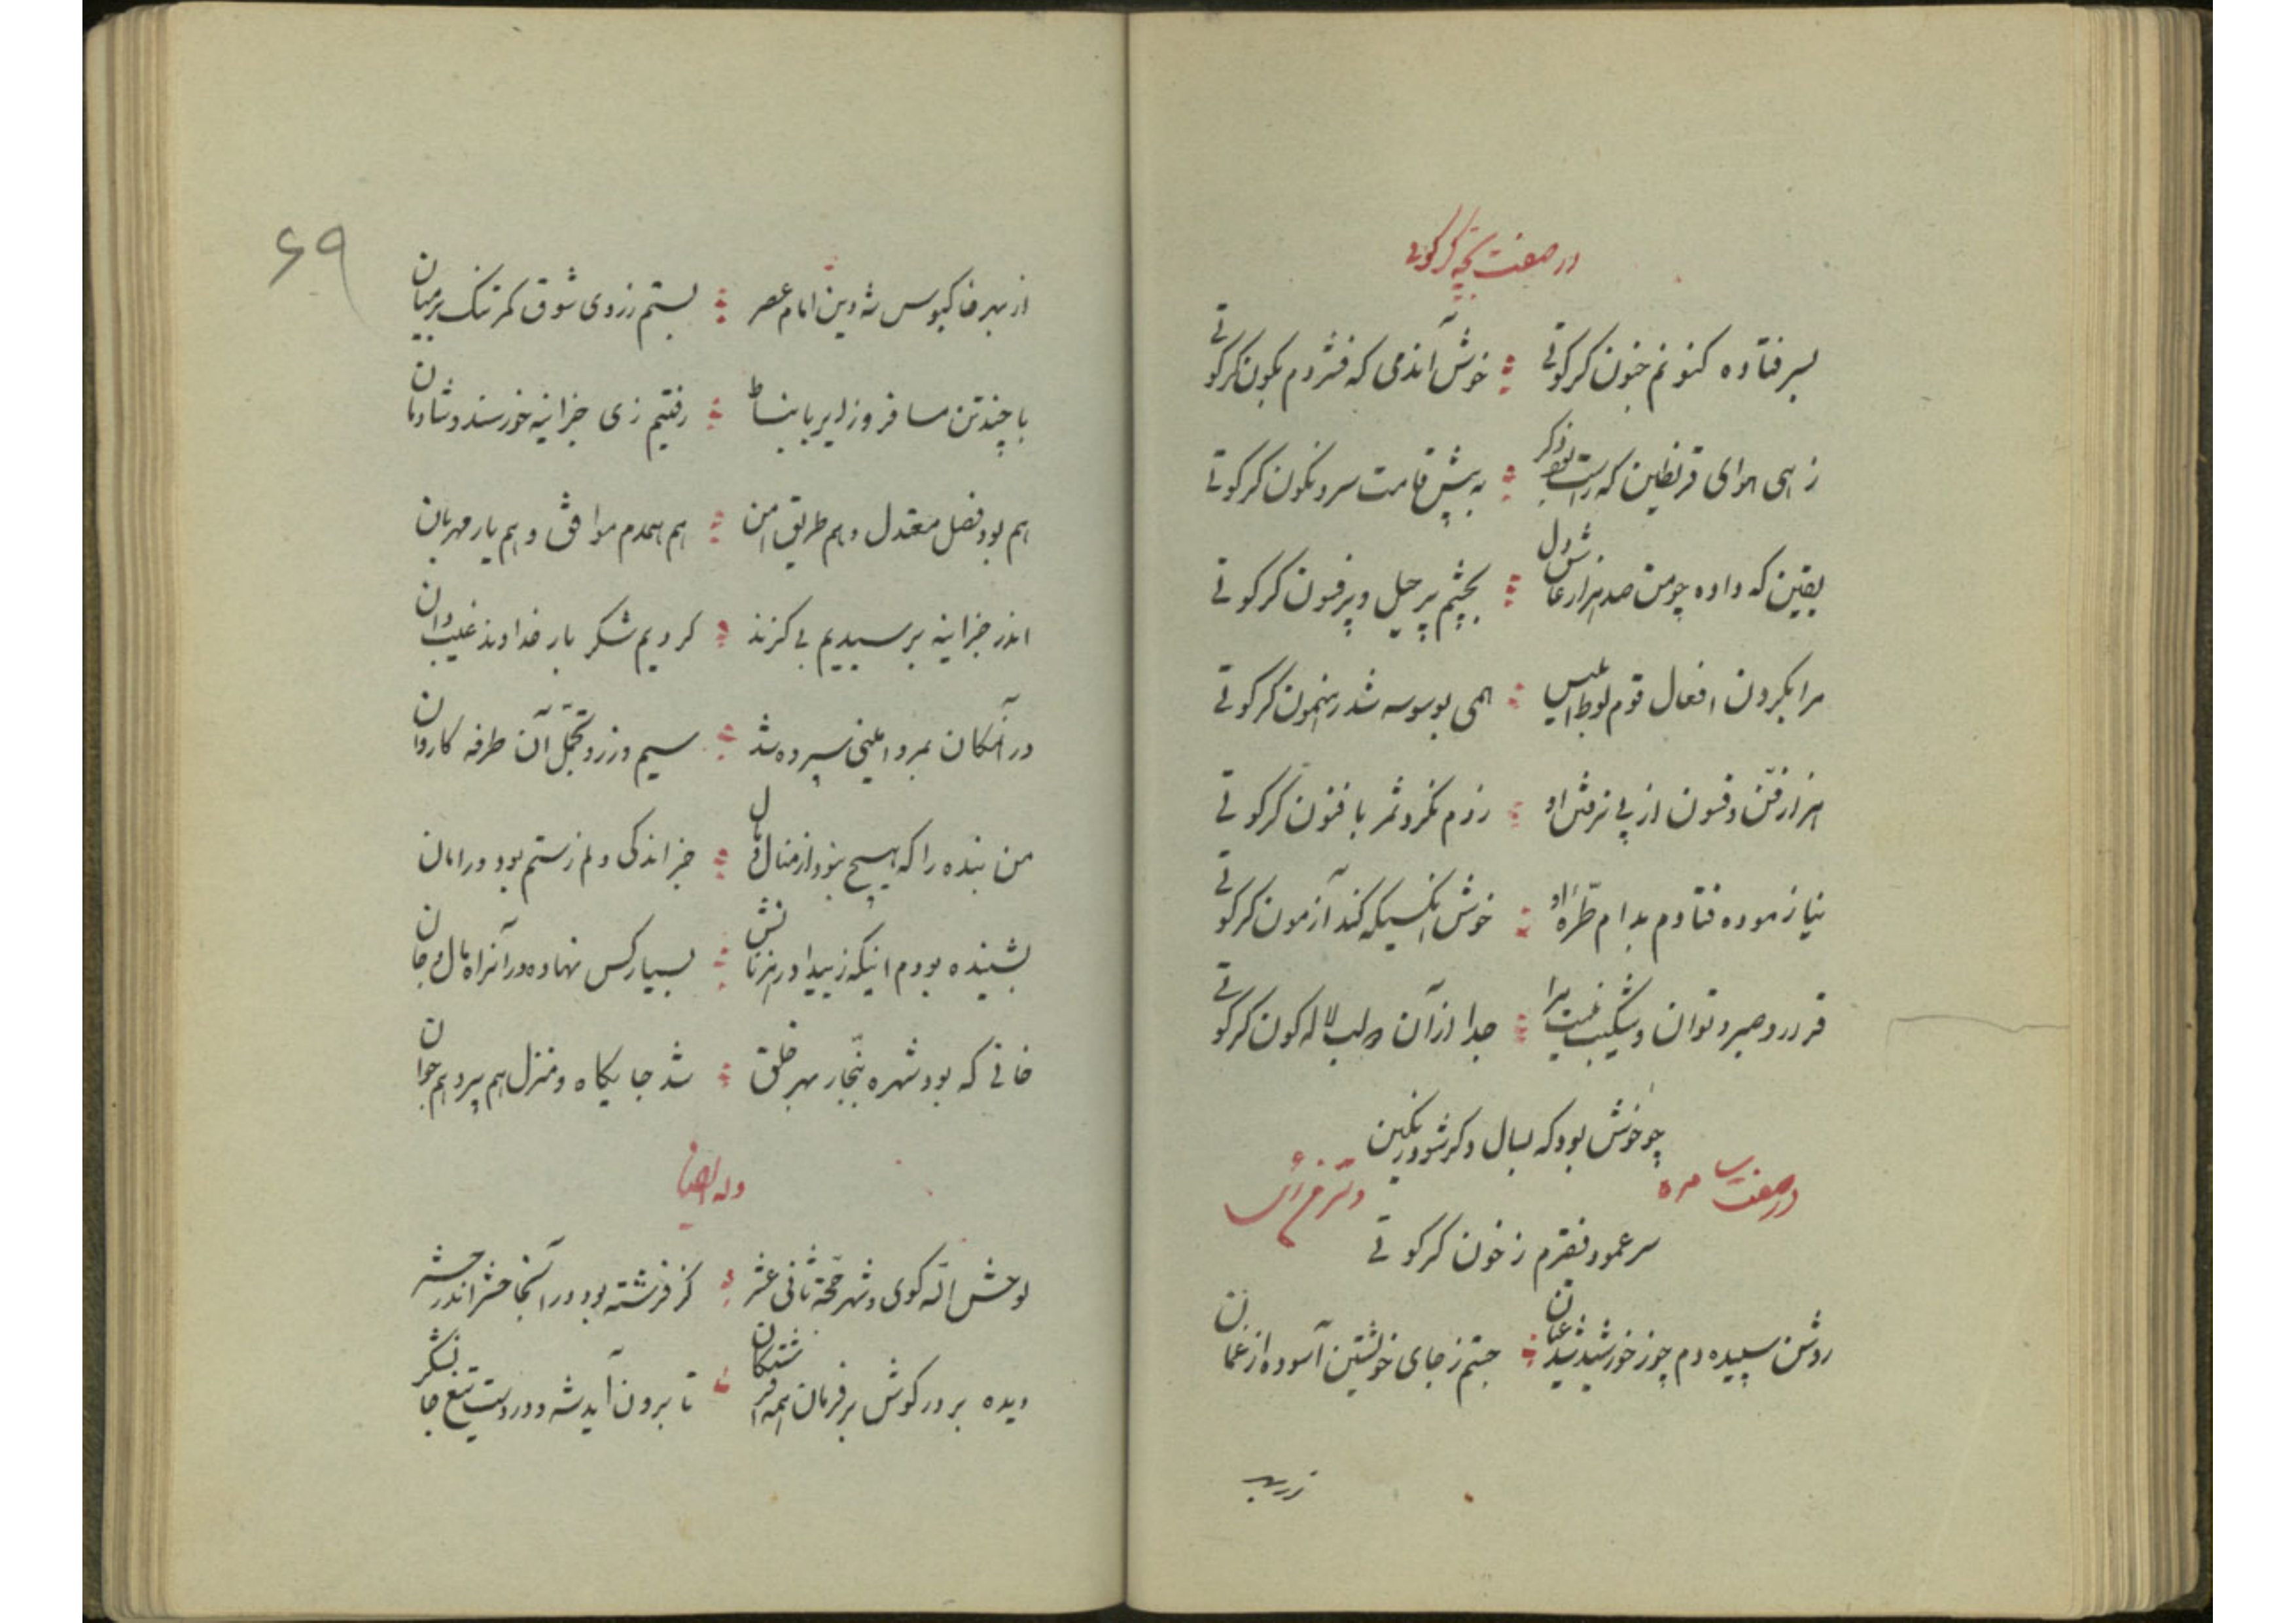 در صفت بچه کرکوتی
بسر فتاده کنونم جنون کرکوتی خوش آندمی که فشردم بکون کرکوتی
زهی هوای که راست به پیش قامت سرو نکون کرکوتی
یقین که داده چو من صد هزار عاشق دل بچشم پر حیل و پر فسون کرکوتی
مرا بکردن افعال قوم لوط ابلیس همی بوسوسه شد رهنمون کرکوتی
هزار فن و فسون از پی نرمش او زدم نکرد ثمر با فنون کرکوتی
نیازموده فتادم بدام طرّهٔ او خوش آنکسیکه کند آزمون کرکوتی
قرار و صبر و توان و شکیب نیست مرا جدا از آن دو لب لاله کون کرکوتی
چو خوش بود که بسال دکر شود رنکین
در صفت سامره
سر عمود نقرم ز خون کرکوتی
روشن سپیده دم چو ز خورشید شد عیان جستم ز جای خویشتن آسوده از غمان
از بهر خاکبوس شه دین امام عصر بستم ز روی شوق کمر تنک بر میان
۶۹
با چند تن مسافر و زایر بانبساط رفتیم زی جزانیه خورسند و شادمان
هم بود فصل معتدل و هم طریق امن هم همدم موافق و هم یار مهربان
اندر جزانیه برسیدیم بی کزند کردیم شکر بار خداوند غیب دان
در آنمکان بمرد امینی سپرده شد سیم و زر و تجمّل آن طرفه کاروان
من بنده را که هیچ نبود از منال و مال جز اندکی ولم ز ستم بود در امان
بشنیده بودم اینکه ز بیداد رهزنانش بسیار کس نهاده در آنراه مال و جان
خانی که بود شهره بنجّار بهر خلق شد جایکاه و منزل هم پیر و هم جوان
وله ایضا
لوحش الله کوی و شهر حجّة ثانی عشر کز فرشته بود در آنجا حشر اندر حشر
دیده بر در کوش بر فرمان همه افرشتکان تا برون آید شه و در دست تیغ جانشکر